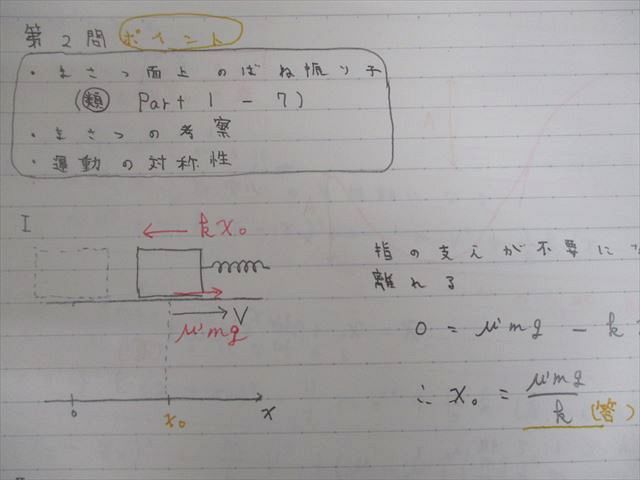 第2問 ポイント
・まさつ面上のばね振り子
(類 Part 1 - 7)
・まさつの考察
・運動の対称性
I
kx₀
V
μ'mg
0
x₀
x
指の支えが不要に
離れる
0 = μ'mg - k
∴ x₀ = μ'mg / k (答)